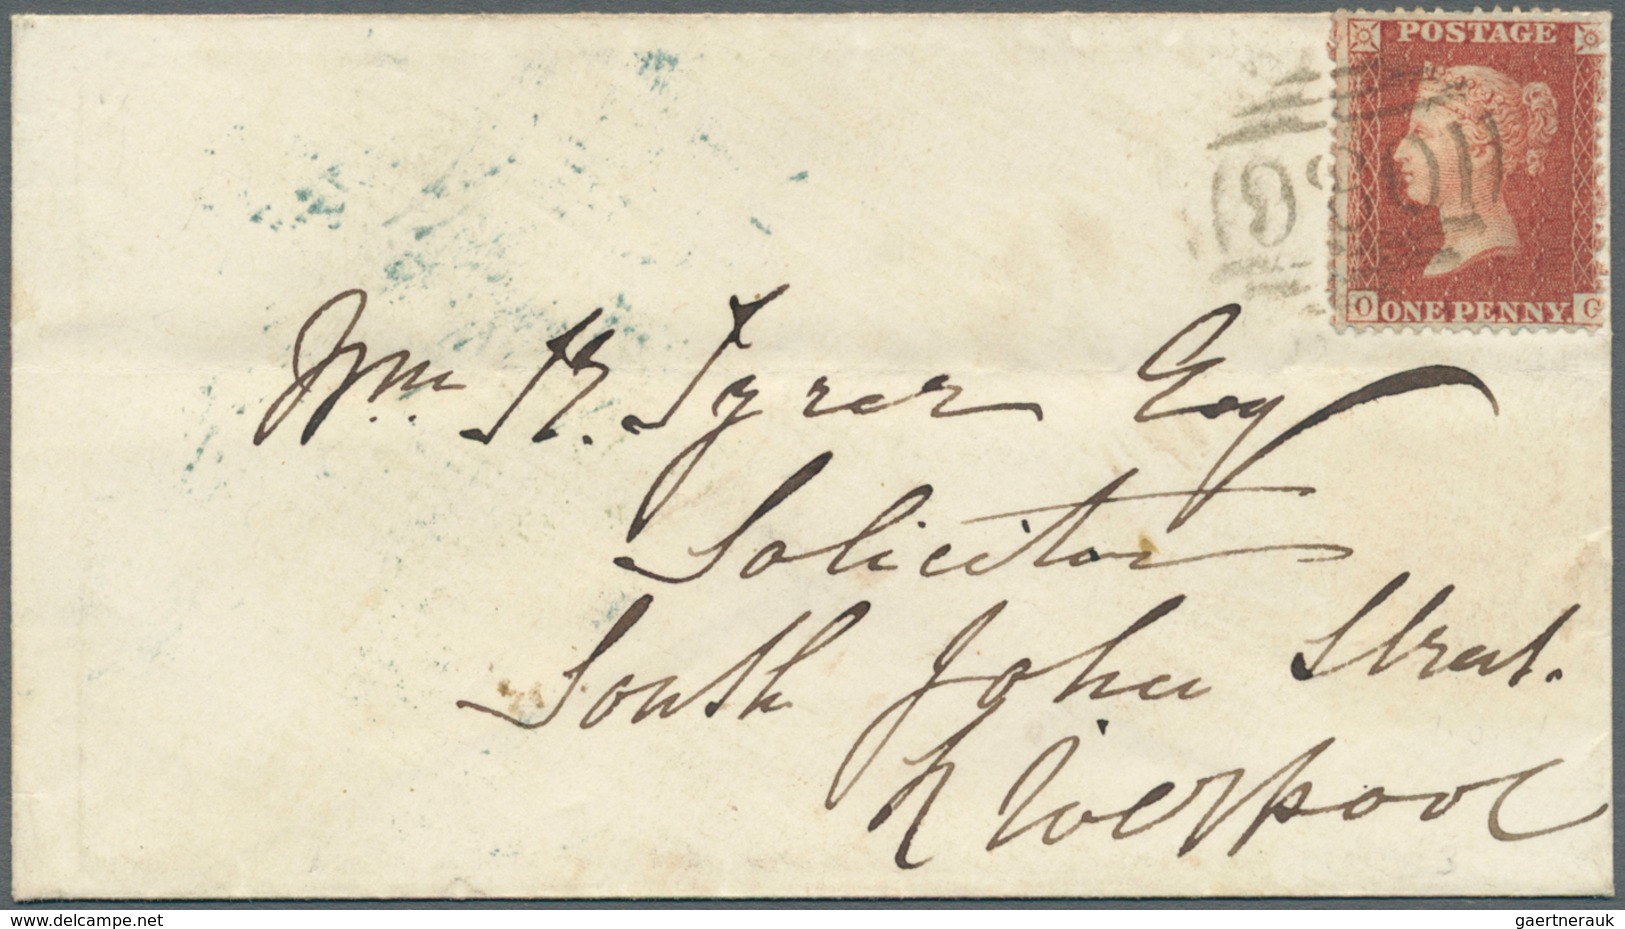 POSTAGE
O ONE PENNY. G
Wm H. Tyrer Esq
Solicitor
South John Street.
Liverpool
www.delcampe.net
gaertnerauk